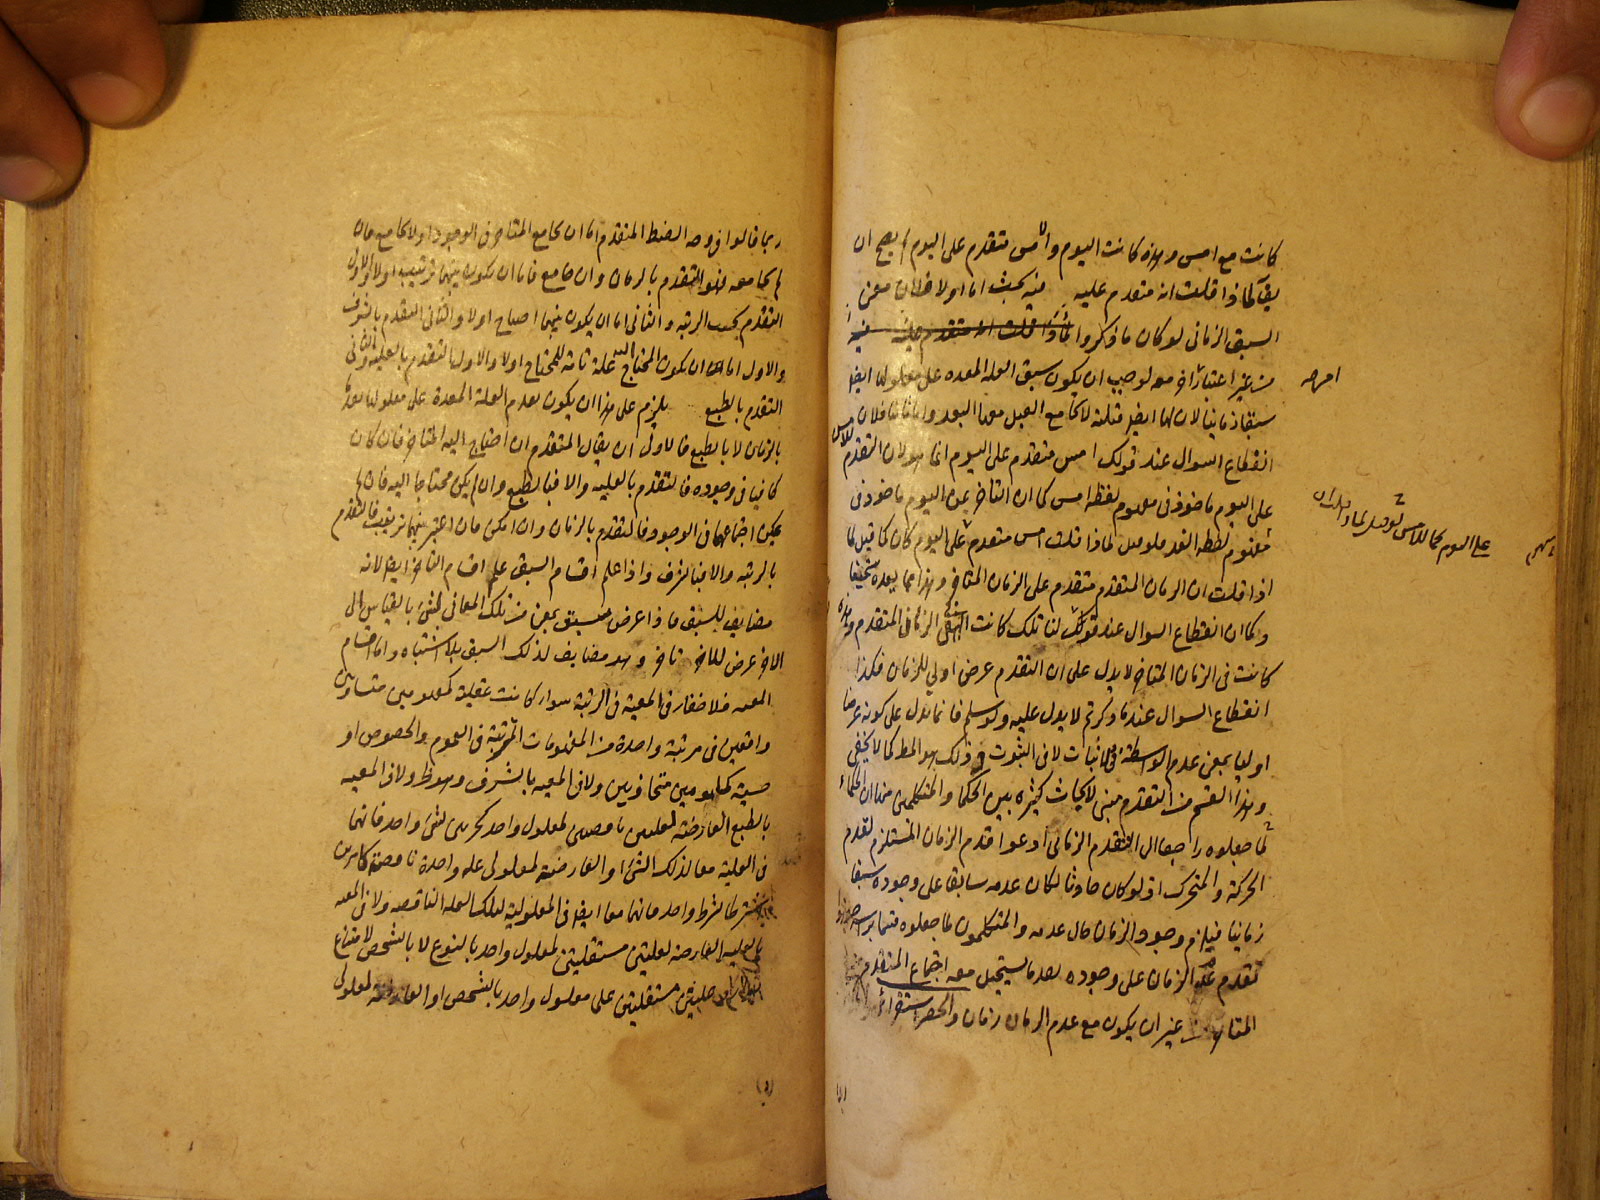 كانت مع امس وهذه كانت اليوم والامس متقدم على اليوم لم يصح ان
يقال لماذا قلت انه متقدم عليه فيه بحث اما اولا فلان معنى
السبق الزمانى لو كان ما ذكروا لماذا قلت انه متقدم عليه فيه
من غير اعتبار اخر معه لوجب ان يكون سبق العلة المعدة على معلولها ايضا
سبقا زمانيا لان لها ايضا قبلية لا تجامع القبل معها البعد واما ثانيا فلان
انقطاع السوال عند قولك امس متقدم على اليوم انما هو لان التقدم
على اليوم ماخوذ فى مفهوم لفظ امس كما ان التاخر عن اليوم ماخوذ فى
مفهوم لفظة الغد فلو قيل لماذا قلت امس متقدم على اليوم كان كما قيل لما
اذا قلت ان الزمان المتقدم متقدم على الزمان المتاخر وهذا مما يعده سخيفا
وكما ان انقطاع السوال عند قولك لنا تلك كانت فى الزمان المتقدم وهذه
كانت فى الزمان المتاخر لا يدل على ان التقدم عرض اولي للزمان فكذا
انقطاع السوال عند ما ذكرتم لا يدل عليه ولو سلم فانما يدل على كونه عرضا
اوليا بمعنى عدم الواسطة فى الاثبات لا فى الثبوت وذلك هو المط كما لا يخفى
وهذا القسم من التقدم مبنى لابحاث كثيرة بين الحكما والمتكلمين منها ان الحكماء
لما جعلوه راجعا الى التقدم الزمانى ادعوا قدم الزمان المستلزم لقدم
الحركة والمتحرك اذ لو كان حادثا لكان عدمه سابقا على وجوده سبقا
زمانيا فيلزم وجود الزمان حال عدمه والمتكلمون لما جعلوه قسما براسه جوزوا
تقدم عدم الزمان على وجوده بعد ما يستحيل معه اجتماع المتقدم
المتاخر من غير ان يكون مع عدم الزمان زمان والحصر استقرائى
على اليوم كما للامس
ربما قالوا فى وجه الضبط المتقدم اما ان يجامع المتاخر فى الوجود او لا يجامع فان
لم يجامعه فهو التقدم بالزمان وان جامع فاما ان يكون بينهما ترتيب اولا والاول
التقدم بحسب الرتبة والثانى اما ان يكون بينهما احتياج اولا والثانى التقدم بالشرف
والاول اما ان يكون المحتاج اليه علة تامة للمحتاج اولا والاول التقدم بالعلية والثانى
التقدم بالطبع يلزم على هذا ان يكون تقدم العلة المعدة على معلولها تقدما
بالزمان لا بالطبع فالاولى ان يقال المتقدم ان احتاج اليه المتاخر فان كان
كافيا فى وجوده فالتقدم بالعلية والا فبالطبع وان لم يكن محتاجا اليه فان لم
يمكن اجتماعهما فى الوجود فالتقدم بالزمان وان امكن فان اعتبر بينهما ترتيب فالتقدم
بالرتبة والا فبالشرف واذا علم اقسام السبق علم اقسام التاخر ايضا لانه
مضايف للسبق فاذا عرض سبق بمعنى من تلك المعانى لشئ بالقياس الى
الاخر عرض للاخر تاخر وهو مضايف لذلك السبق بلا اشتباه واما اقسام
المعية فلا خفاء فى المعية فى الرتبة سواء كانت عقلية كمفهومين متساويين
واقعين فى مرتبة واحدة من المفهومات المترتبة فى العموم والخصوص او
حسية كمامومين متحاذيين ولا فى المعية بالشرف وهو ظ ولا فى المعية
بالطبع العارضة لعلتين ناقصتين لمعلول واحد كجزئى لشئ واحد فانهما
فى العلية معا لذلك الشئ او العارضة لمعلولى علة واحدة ناقصة كامرين
مشترطا بشرط واحد فانهما معا ايضا فى المعلولية لتلك العلة الناقصة ولا فى المعية
بالعلية العارضة لعلتين مستقلتين لمعلول واحد بالنوع لا بالشخص لامتناع
علتين مستقلتين على معلول واحد بالشخص او العارضة لمعلولى